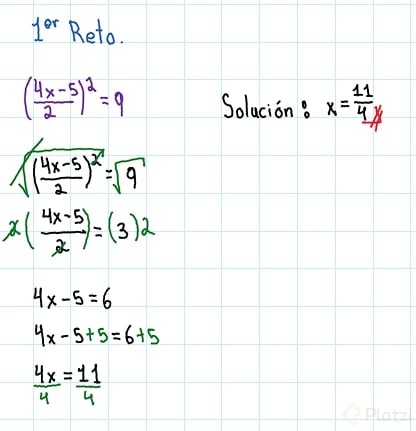 1er Reto.
((4x-5)/2)² = 9
Solución: x = 11/4
√((4x-5)/2)² = √9
2((4x-5)/2) = (3)2
4x - 5 = 6
4x - 5 + 5 = 6 + 5
4x/4 = 11/4
Platzi